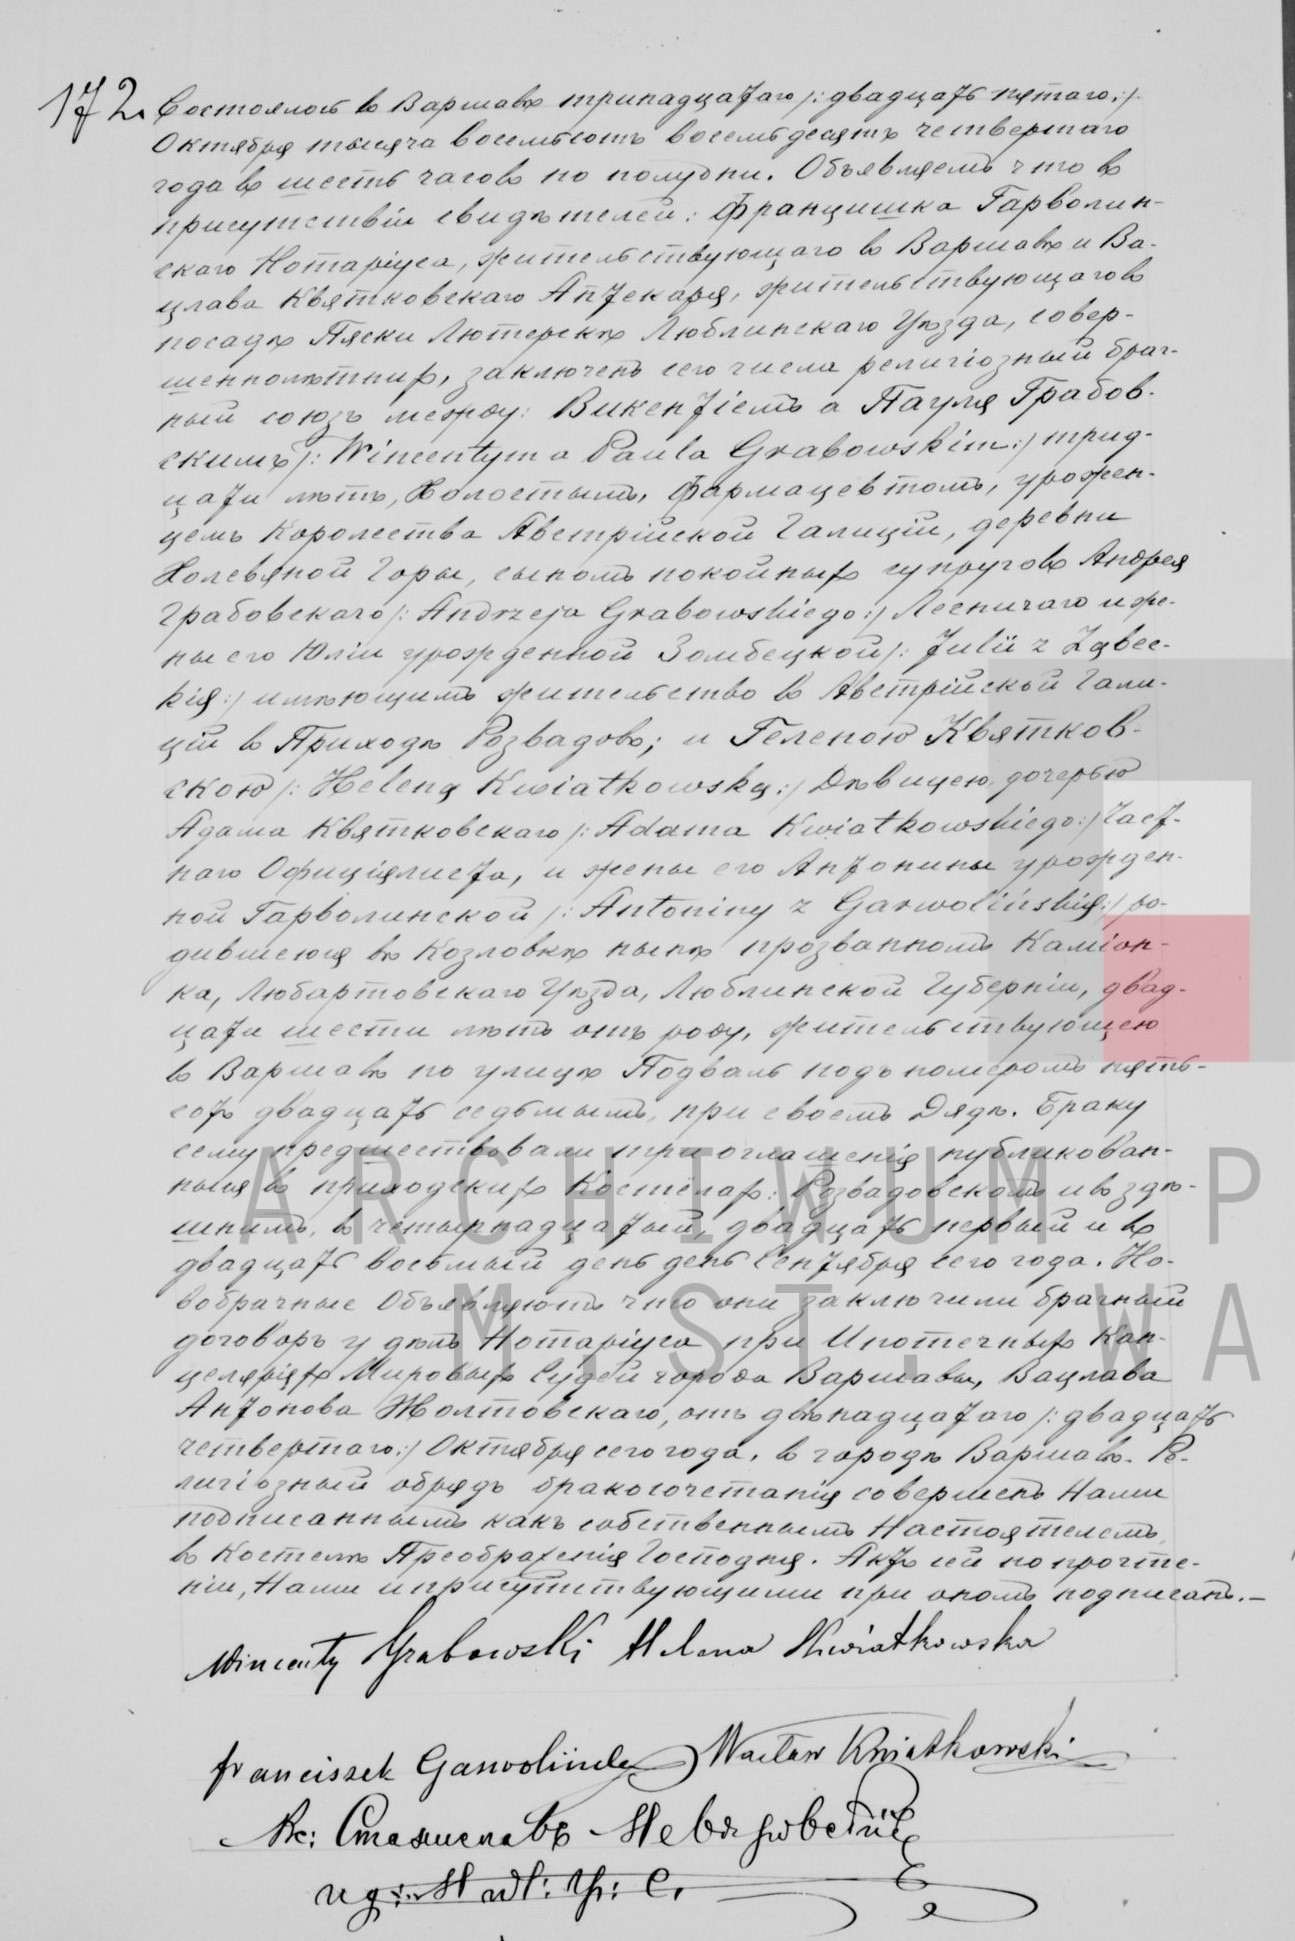 172. Состоялось въ Варшавѣ тринадцатаго /: двадцать пятаго :/
Октября тысяча восемьсотъ восемьдесятъ четвертаго
года въ шесть часовъ по полудни. Объявляемъ что въ
присутствіи свидѣтелей: Францишка Гарволин-
скаго Нотаріуса, жительствующаго въ Варшавѣ и Ва-
цлава Квятковскаго Аптекаря, жительствующаго въ
посадѣ Пяски Лютерскѣ Люблинскаго Уѣзда, совер-
шеннолѣтнихъ, заключенъ сего числа религіозный брач-
ный союзъ между: Викентіемъ а Пауля Грабов-
скимъ /: Wincentym a Paula Grabowskim :/ трид-
цати лѣтъ, Холостымъ, фармацевтомъ, урожен-
цемъ Королества Австрійской Галиціи, деревни
Горы, сыномъ покойныхъ супруговъ Андрея
Грабовскаго /: Andrzeja Grabowskiego :/ Лесничаго и же-
ны его Юліи урожденной Зомбецкой /: Julii z Ząbec-
kią :/ имѣющимъ жительство въ Австрійской Гали-
ціи въ Приходѣ Розвадовъ; и Геленою Квятков-
скою /: Heleną Kwiatkowską :/ Дѣвицею, дочерью
Адама Квятковскаго /: Adama Kwiatkowskiego :/ Част-
наго Официялиста, и жены его Антонины урожден-
ной Гарволинской /: Antoniny z Garwolińskią :/ ро-
дившеюся въ Козловкѣ нынѣ прозванномъ Каміон-
ка, Любартовскаго Уѣзда, Люблинской Губерніи, двад-
цати шести лѣтъ отъ роду, жительствующею
въ Варшавѣ по улицѣ Подваль подъ номеромъ пять-
сотъ двадцать седьмымъ, при своемъ Дядѣ. Браку
сему предшествовали три оглашенія публикован-
ныя въ приходскихъ Костёлахъ: Розвадовскомъ и въ здѣ-
шнимъ, въ четырнадцатый, двадцать первый и въ
двадцать восьмый день день Сентября сего года. Но-
вобрачные Объявляютъ что они заключили брачный
договоръ у дѣлъ Нотаріуса при Ипотечныхъ Кан-
целяріяхъ Мировыхъ Судей города Варшавы, Вацлава
Антонова Жолтовскаго, отъ двѣнадцатаго /: двадцать
четвертаго :/ Октября сего года, въ городѣ Варшавѣ. Ре-
лигіозный обрядъ бракосочетанія совершенъ Нами
подписаннымъ какъ собственнымъ Настоятелемъ,
въ Костелѣ Преображенія Господня. Актъ сей по прочте-
ніи, Нами и присутствующими при ономъ подписанъ. —
Wincenty Grabowski Helena Kwiatkowska
Franciszek Garwoliński Wacław Kwiatkowski
Кс: Станиславъ
ARCHIWUM P
M. ST. WA